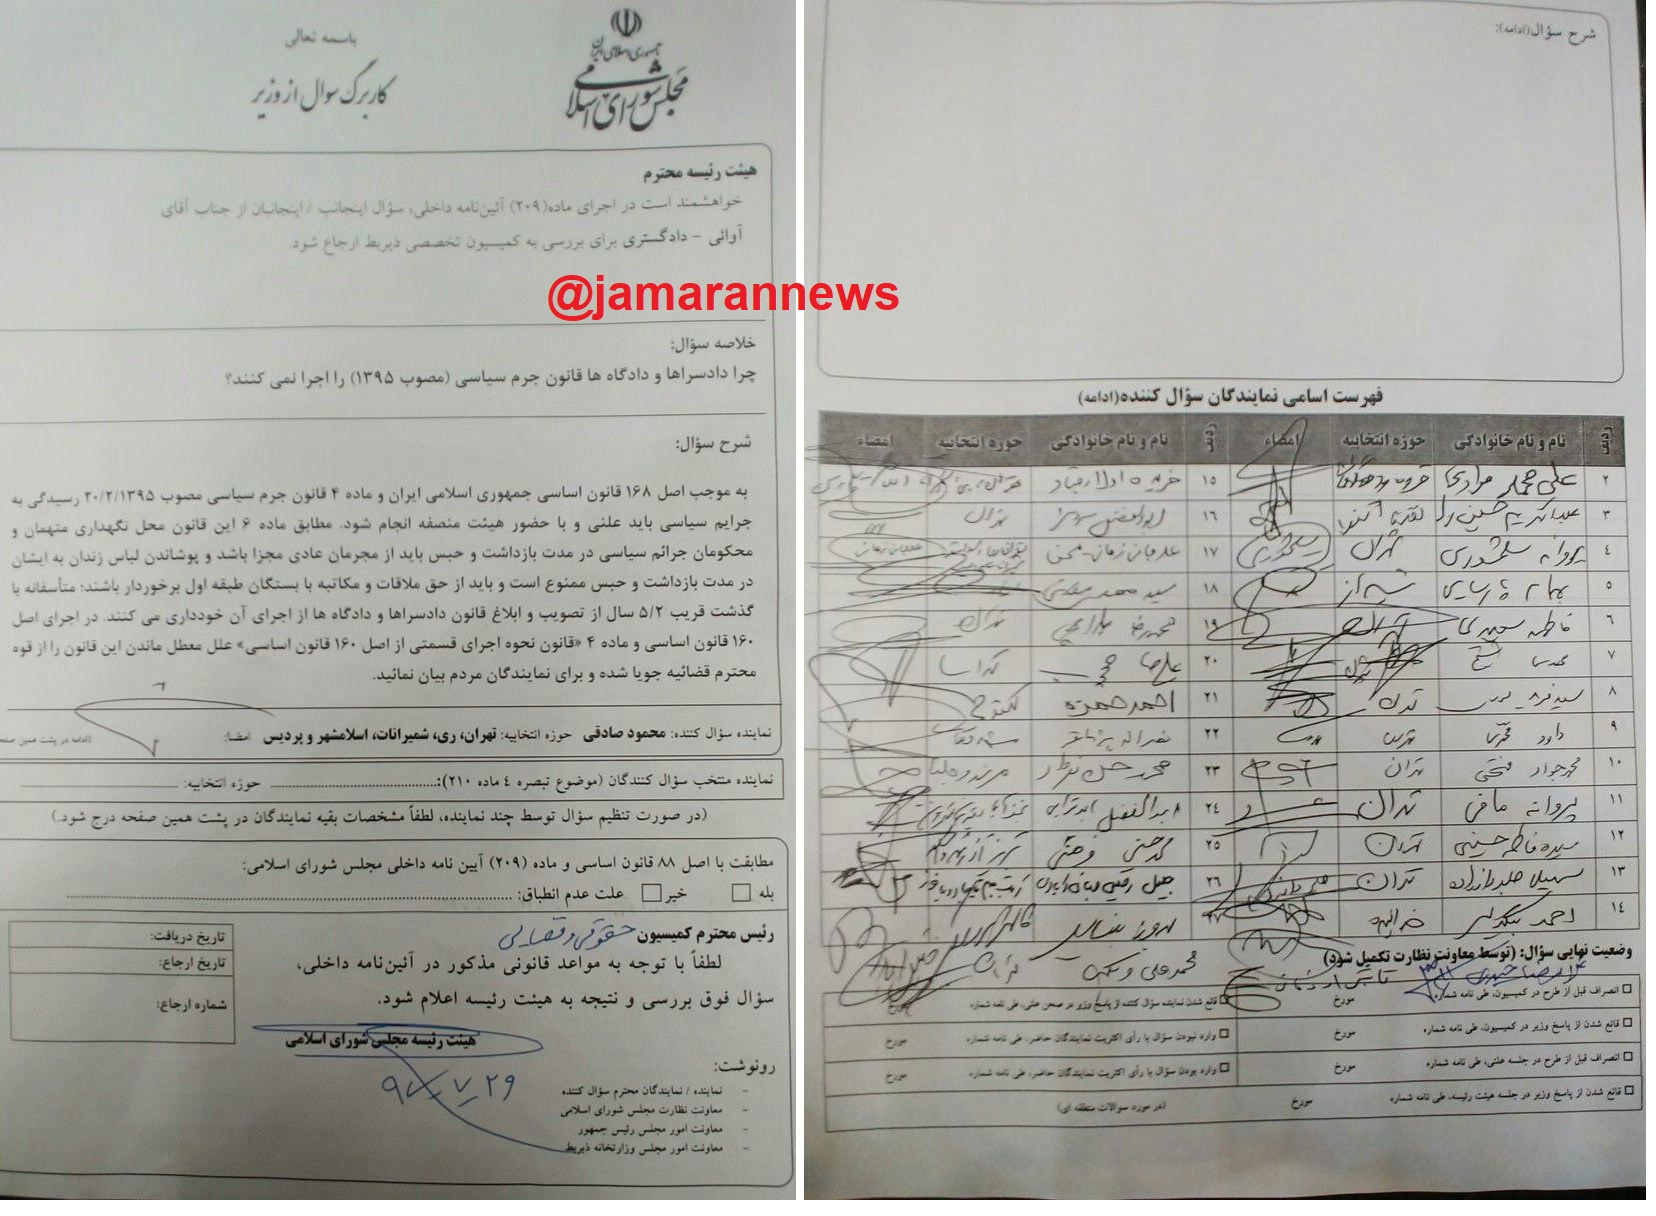 باسمه تعالی
کاربرگ سوال از وزیر
جمهوری اسلامی ایران
مجلس شورای اسلامی
هیئت رئیسه محترم
خواهشمند است در اجرای ماده(۲۰۹) آئین‌نامه داخلی، سؤال اینجانب / اینجانبان از جناب آقای
آوائی - دادگستری برای بررسی به کمیسیون تخصصی ذیربط ارجاع شود.
@jamarannews
خلاصه سؤال:
چرا دادسراها و دادگاه ها قانون جرم سیاسی (مصوب ۱۳۹۵) را اجرا نمی کنند؟
شرح سؤال:
به موجب اصل ۱۶۸ قانون اساسی جمهوری اسلامی ایران و ماده ۴ قانون جرم سیاسی مصوب ۲۰/۲/۱۳۹۵ رسیدگی به
جرایم سیاسی باید علنی و با حضور هیئت منصفه انجام شود. مطابق ماده ۶ این قانون محل نگهداری متهمان و
محکومان جرائم سیاسی در مدت بازداشت و حبس باید از مجرمان عادی مجزا باشد و پوشاندن لباس زندان به ایشان
در مدت بازداشت و حبس ممنوع است و باید از حق ملاقات و مکاتبه با بستگان طبقه اول برخوردار باشند؛ متأسفانه با
گذشت قریب ۵/۲ سال از تصویب و ابلاغ قانون دادسراها و دادگاه ها از اجرای آن خودداری می کنند. در اجرای اصل
۱۶۰ قانون اساسی و ماده ۴ «قانون نحوه اجرای قسمتی از اصل ۱۶۰ قانون اساسی» علل معطل ماندن این قانون را از قوه
محترم قضائیه جویا شده و برای نمایندگان مردم بیان نمائید.
نماینده سؤال کننده: محمود صادقی حوزه انتخابیه: تهران، ری، شمیرانات، اسلامشهر و پردیس امضا: (ادامه در پشت همین صفحه
نماینده منتخب سؤال کنندگان (موضوع تبصره ٤ ماده ۲۱۰): حوزه انتخابیه:
(در صورت تنظیم سؤال توسط چند نماینده، لطفاً مشخصات بقیه نمایندگان در پشت همین صفحه درج شود.)
مطابقت با اصل ۸۸ قانون اساسی و ماده (۲۰۹) آیین نامه داخلی مجلس شورای اسلامی:
بله خیر علت عدم انطباق:
رئیس محترم کمیسیون حقوقی و قضائی
لطفاً با توجه به مواعد قانونی مذکور در آئین‌نامه داخلی،
سؤال فوق بررسی و نتیجه به هیئت رئیسه اعلام شود.
تاریخ دریافت:
تاریخ ارجاع:
شماره ارجاع:
هیئت رئیسه مجلس شورای اسلامی
۹۷_۷_۲۹
رونوشت:
- نماینده / نمایندگان محترم سؤال کننده
- معاونت نظارت مجلس شورای اسلامی
- معاونت امور مجلس رئیس جمهور
- معاونت امور مجلس وزارتخانه ذیربط
شرح سؤال(ادامه):
فهرست اسامی نمایندگان سؤال کننده(ادامه)
ردیف نام و نام خانوادگی حوزه انتخابیه امضاء ردیف نام و نام خانوادگی حوزه انتخابیه امضاء
۲ علی محمد مرادی ۱۵
۳ عبدالکریم حسین زاده ۱۶ تهران
۴ پروانه سلحشوری تهران ۱۷
۵ بهرام پارسایی شیراز ۱۸ سید محمد
۶ فاطمه سعیدی تهران ۱۹ محمدرضا تهران
۷ تهران ۲۰ علیرضا
۸ سید فرید تهران ۲۱ احمد حمزه کهنوج
۹ داود تهران ۲۲
۱۰ محمدجواد فتحی تهران ۲۳
۱۱ پروانه مافی تهران ۲۴ ابوالفضل
۱۲ سیده فاطمه حسینی تهران ۲۵
۱۳ سهیلا جلودارزاده تهران ۲۶
۱۴ احمد بیگدلی خدابنده ۲۷ بهروز
محمدعلی وکیلی تهران
وضعیت نهایی سؤال: (توسط معاونت نظارت تکمیل شود)
انصراف قبل از طرح در کمیسیون، طی نامه شماره مورخ
قانع شدن نماینده سؤال کننده از پاسخ وزیر در صحن علنی، طی نامه شماره مورخ
قانع شدن از پاسخ وزیر در کمیسیون، طی نامه شماره مورخ
وارد نبودن سؤال با رأی اکثریت نمایندگان حاضر، طی نامه شماره مورخ
انصراف قبل از طرح در جلسه علنی، طی نامه شماره مورخ
وارد بودن سؤال با رأی اکثریت نمایندگان حاضر، طی نامه شماره مورخ
قانع شدن از پاسخ وزیر در جلسه هیئت رئیسه، طی نامه شماره مورخ
(در مورد سوالات منطقه ای)